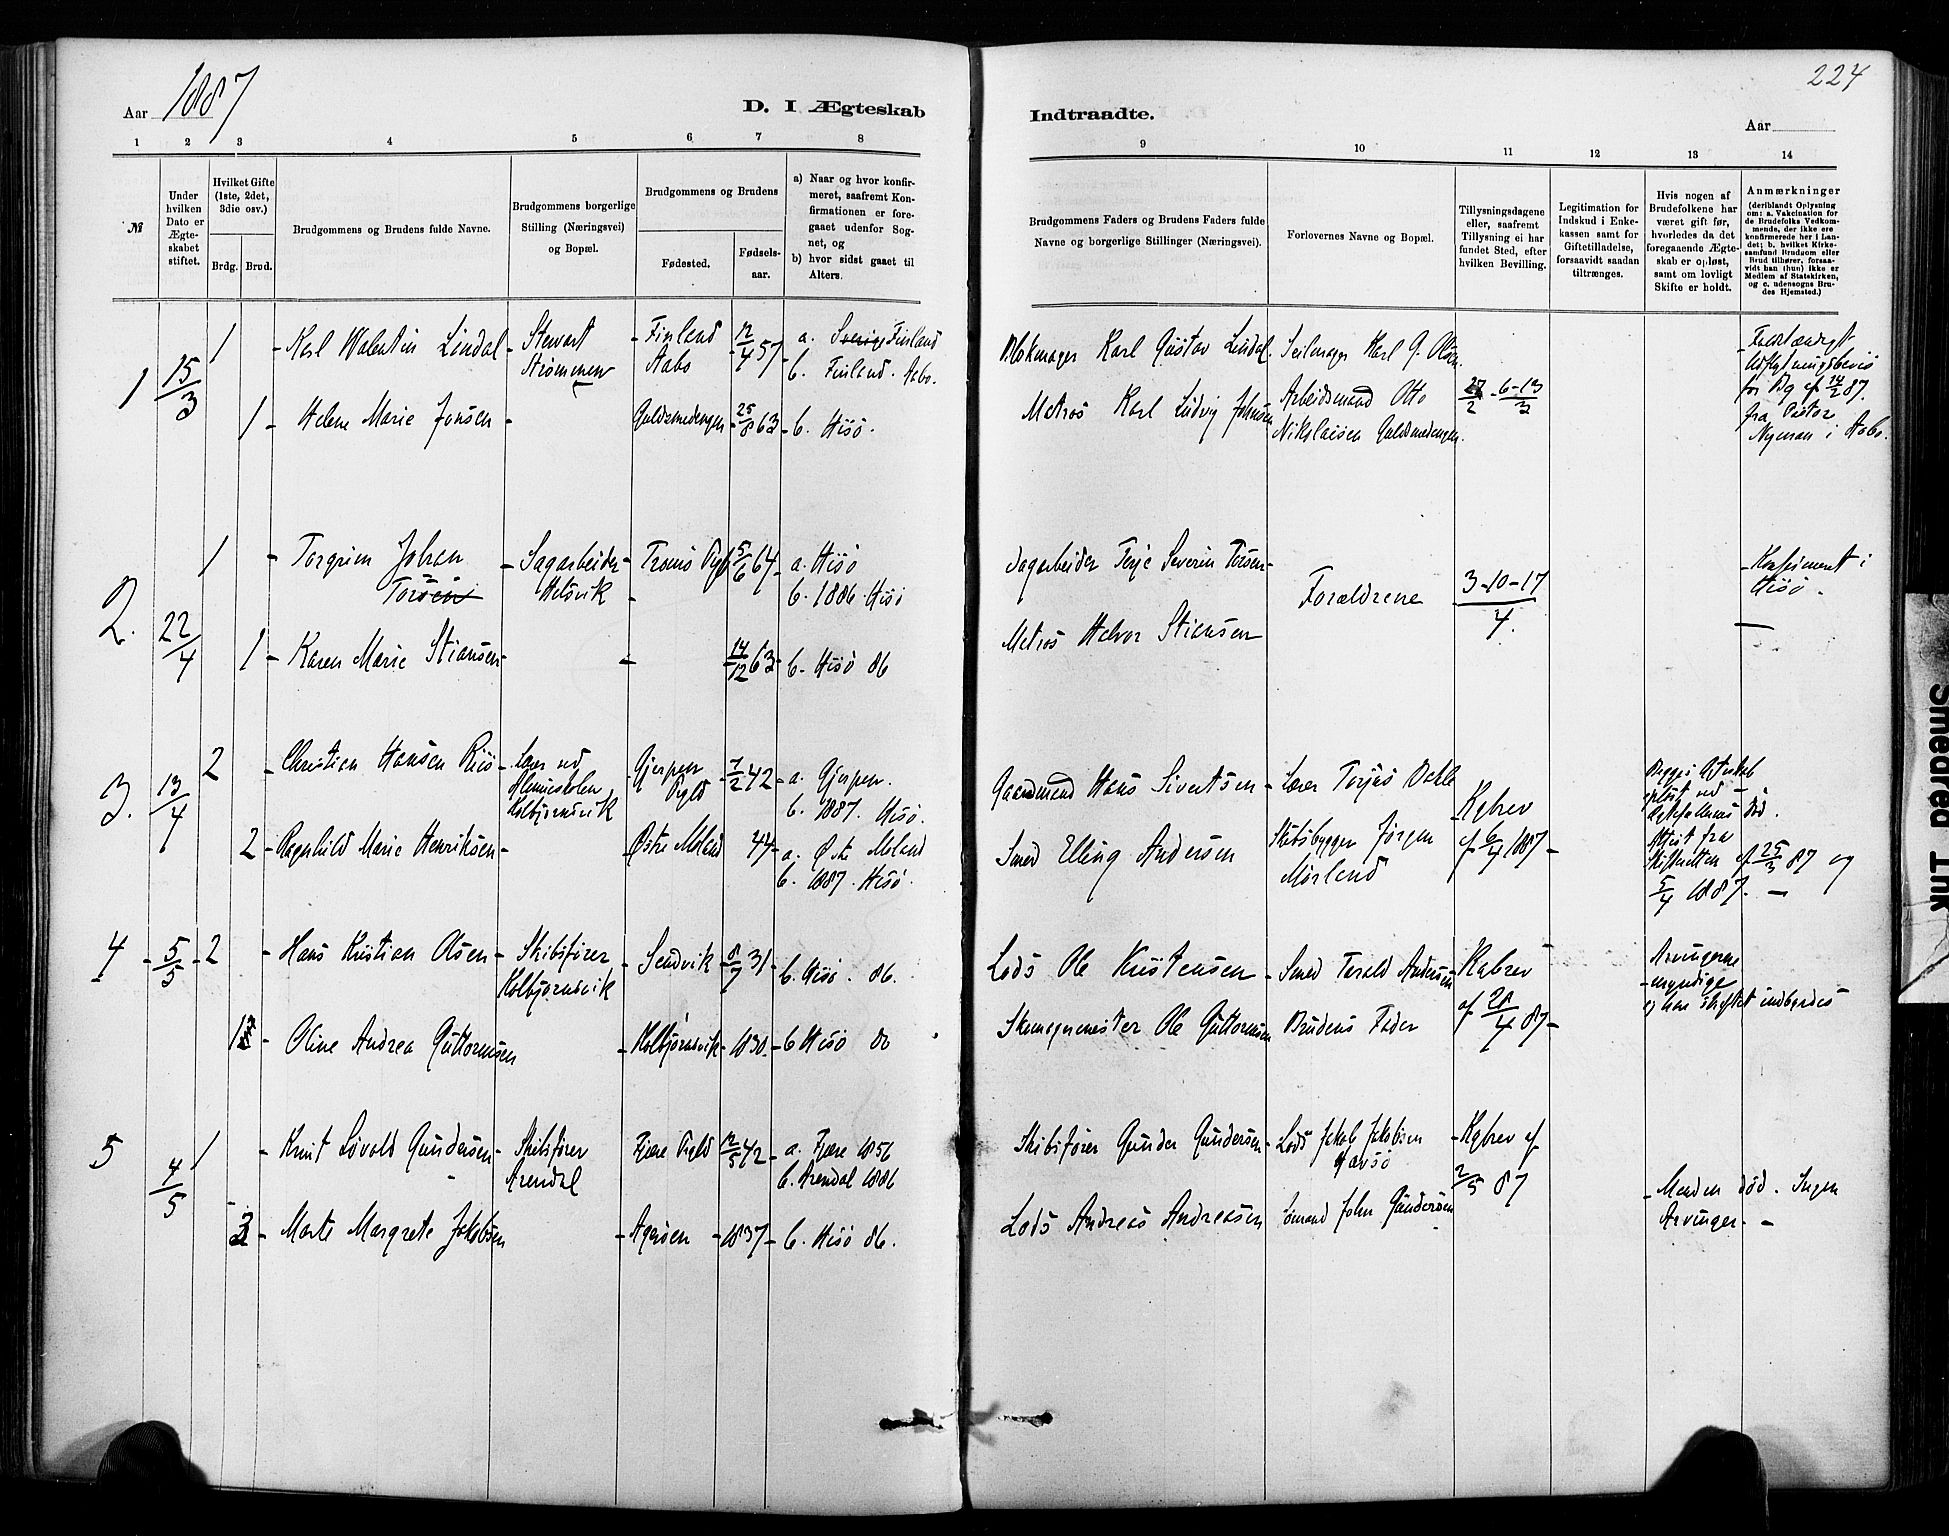 1887
224
Aar
D. I Ægteskab
Indtraadte.
Aar
1 2 3 4 5 6 7 8
9 10 11 12 13 14
№
Under hvilken Dato er Ægteskabet stiftet.
Hvilket Gifte (1ste, 2det, 3die osv.)
Brdg. Brud.
Brudgommens og Brudens fulde Navne.
Brudgommens borgerlige Stilling (Næringsvei) og Bopæl.
Brudgommens og Brudens
Fødested.
Fødsels-aar.
a) Naar og hvor konfirmeret, saafremt Konfirmationen er foregaaet udenfor Sognet, og
b) hvor sidst gaaet til Alters.
Brudgommens Faders og Brudens Faders fulde Navne og borgerlige Stillinger (Næringsvei).
Forlovernes Navne og Bopæl.
Tillysningsdagene eller, saafremt Tillysning ei har fundet Sted, efter hvilken Bevilling.
Legitimation for Indskud i Enkekassen samt for Giftetilladelse, forsaavidt saadan tiltrænges.
Hvis nogen af Brudefolkene har været gift før, hvorledes da det foregaaende Ægteskab er opløst, samt om lovligt Skifte er holdt.
Anmærkninger (deriblandt Oplysning om: a. Vakcination for de Brudefolks Vedkommende, der ikke ere konfirmerede her i Landet; b. hvilket Kirkesamfund Brudgom eller Brud tilhører, forsaavidt han (hun) ikke er Medlem af Statskirken, og c. udensogns Brudes Hjemsted.)
1 15/3 1 - Karl Valentin Lindal - Stewart Strømmen - Finland Aabo - 12/4 57 - a. Sverige Finland b. Finland. Aabo.
Blokmager Karl Gustav Lindal. Seilmager Karl G. Olsen
Udflytningsbevis for Bg af 14/2 87. fra Pastor Nyman i Aabo.
1 - Helene Marie Jonsen - Guldsmedengen - 25/8 63 - b. Hisö.
Matros Karl Ludvig Johnsen Arbeidsmand Otto Nikolaisen Guldsmedengen. 27/2 - 6-13/3
2. 22/4 1 - Torgrim Johan Torsen - Sagarbeider Helsvik - Tromö Pgld 5/6 64 - a. Hisö b. 1886. Hisö
Sagarbeider Terje Severin Torsen - Forældrene 3-10-17/4. - Konfirmert i Hisö.
1 - Karen Marie Stiansen - - 14/12 63 - b. Hisö 86
Matros Halvor Stiansen
3. 13/4 2 - Christian Hansen Riis - Lærer ved Almueskolen Kolbjørnsvik - Gjerpen Pgld - 7/2 42 - a. Gjerpen. b. 1887. Hisö.
Gaardmand Hans Sivertsen - Lærer Torjus Dahle Kgbrev af 6/4 1887 -
Begges Ægteskab opløst ved Ægtefællernes Død. Attest fra Skifteretten af 25/3 87 og 5/4 1887. -
2 - Ragnhild Marie Henriksen - Østre Moland 44 - a. Østre Moland b. 1887. Hisö.
Smed Elling Andersen Skibsbygger Jörgen Mörland
4 - 5/5 - 2 - Hans Kristian Olsen - Skibsfører Kolbjørnsvik - Sandvik - 8/7 31 - b. Hisö. 86.
Lods Ole Kristensen - Smed Tarald Andersen - Kgbrev af 28/4 87 - Arvingerne myndige og han skiftet indbyrdes
1 - Oline Andrea Guttormsen - Kolbjørnsvik - 1830 - b Hisö 86
Skomagermester Ole Guttormsen Brudens Fader
5 4/5 1 - Knut Løvold Gundersen - Skibsfører Arendal Fjære Pgld 12/5 42 - a. Fjære 1856 b. Arendal 1886
Skibsfører Gunder Gundersen - Lods Jakob Jakobsen Havsö - Kgbrev af 2/5 87
2 - Marte Margrete Jakobsen - Agerøen - 1837 - b. Hisö 86.
Lods Andreas Andreasen Sömand John Gundersen - Manden død. Ingen Arvinger. -
Smeared Ink